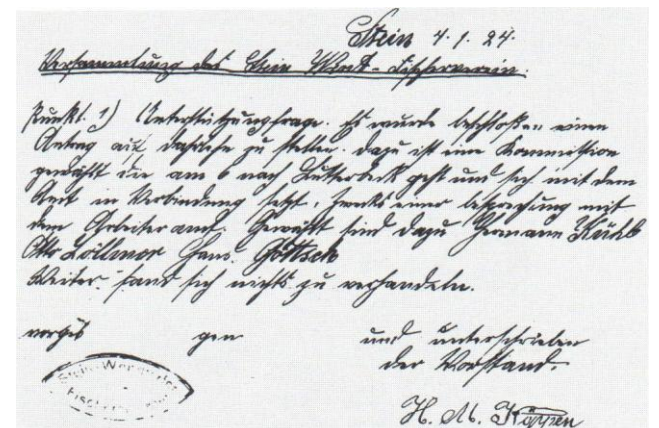 Stein 4.1.24.
Versammlung des Stein Wend-Fischerverein.
Punkt. 1) Unterstützungsfrage. Es wurde beschloßen einen
Antrag auf Darlehn zu stellen. dazu ist eine Kommission
gewählt die am 6 nach Lutterbeck geht und sich mit dem
Amt in Verbindung setzt, zwecks einer besprechung mit
dem Arbeiteramt. Gewählt sind dazu Hermann Kühl
Otto Göttsch
Weiter fand sich nichts zu verhandeln.
vorgele gen und unterschrieben
der Vorstand.
Stein-Wend
Fischer
H. M. Köppen